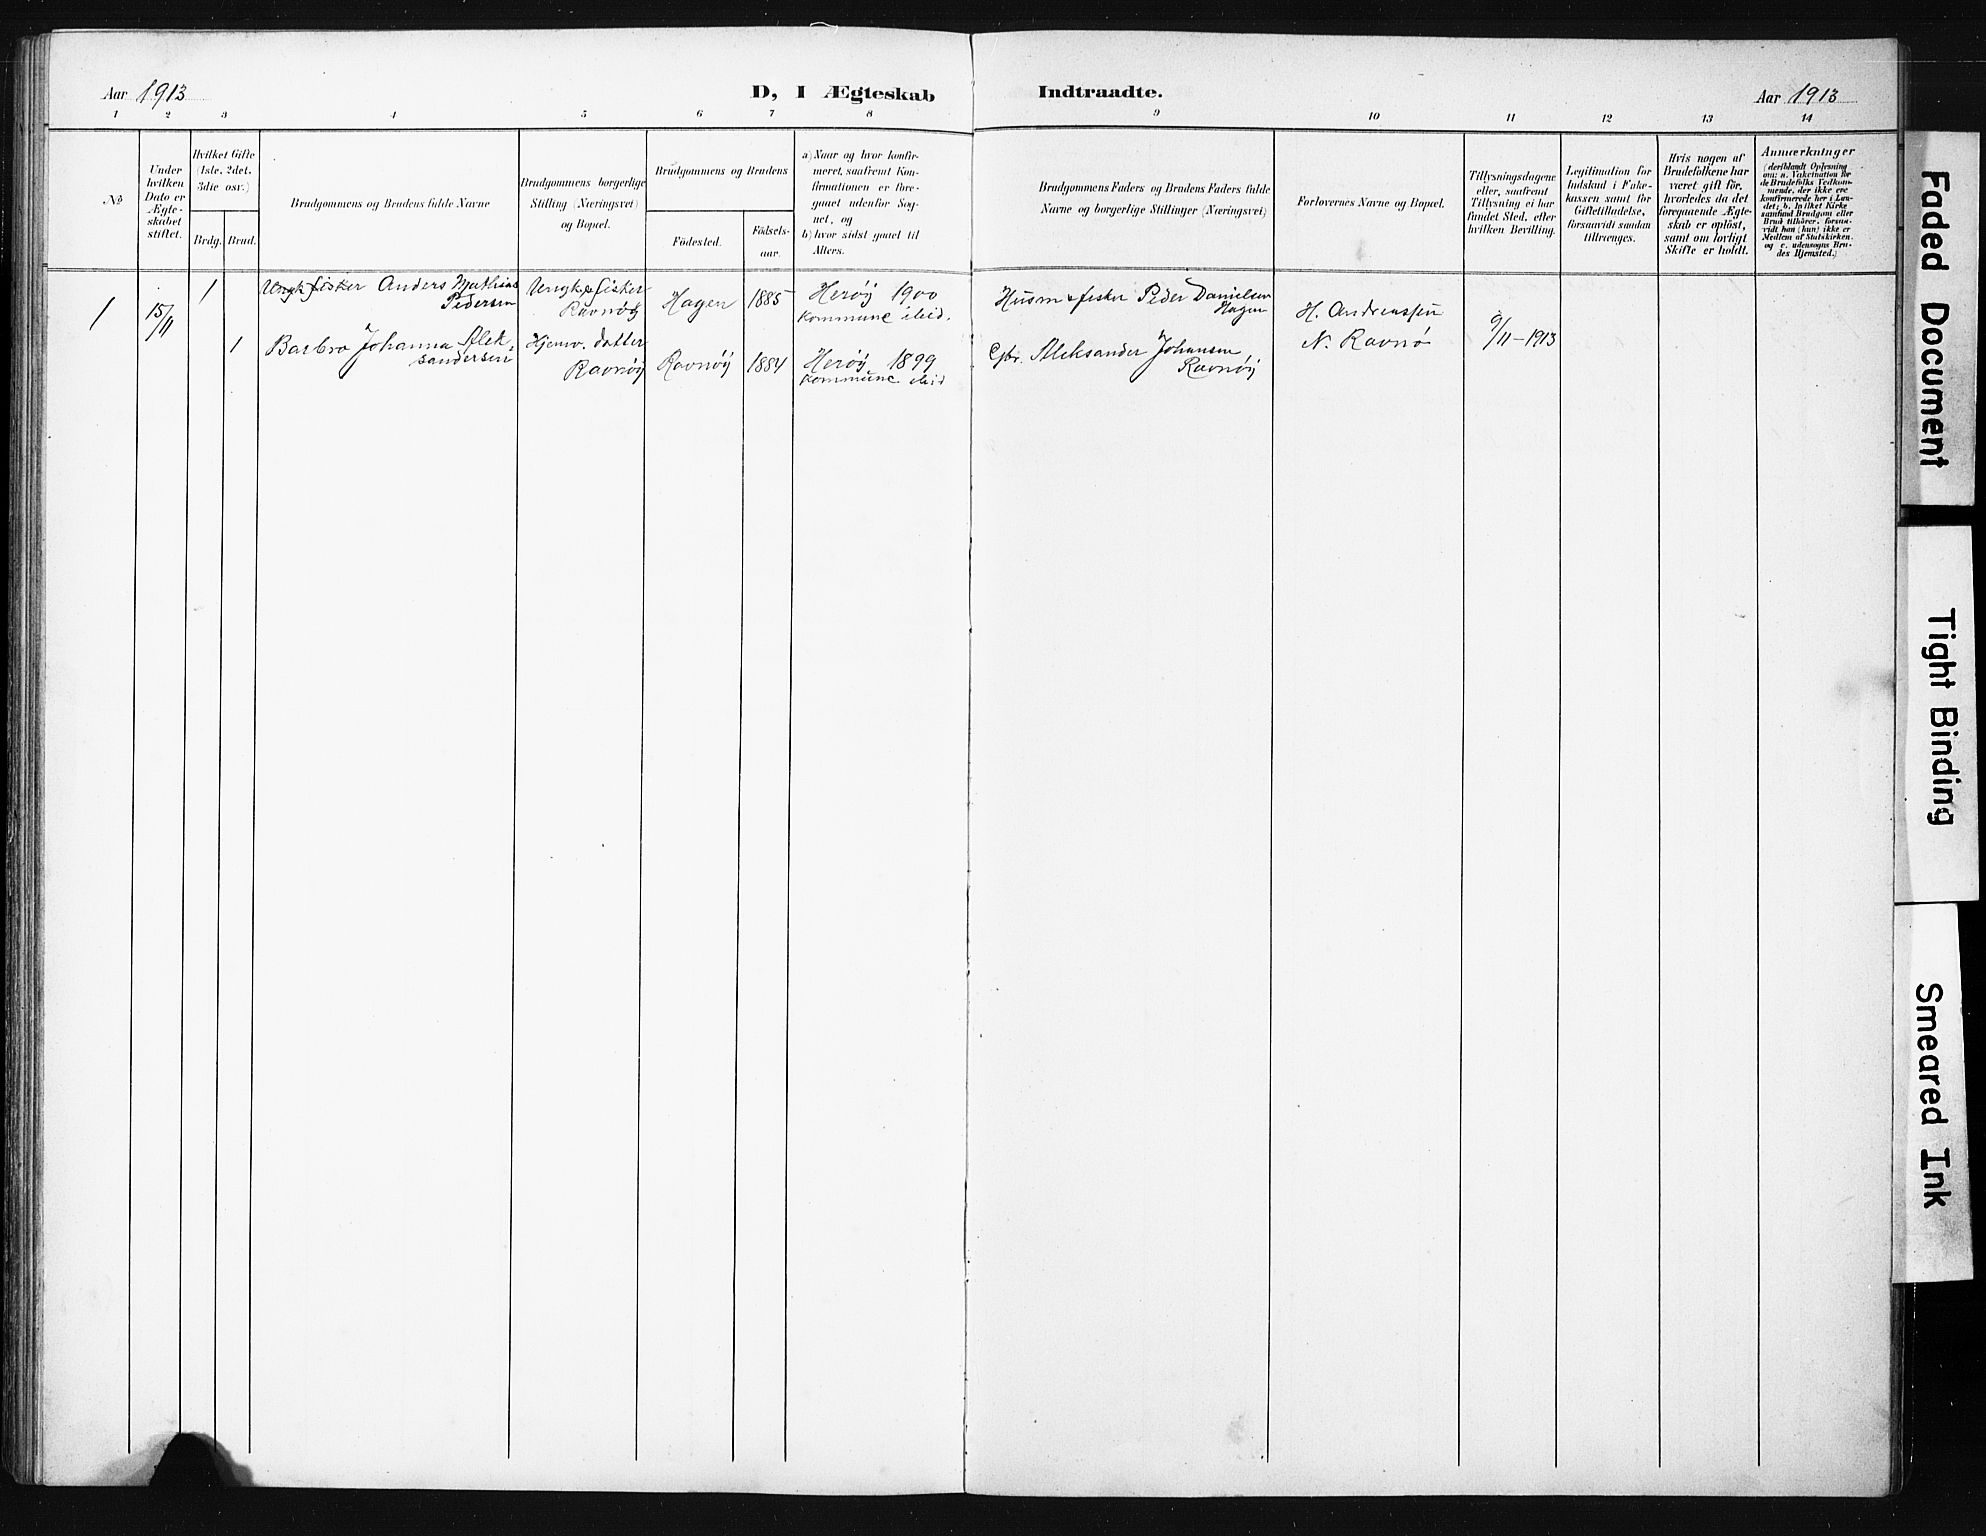 Aar 1913
D, I Ægteskab
Indtraadte.
Aar 1913
1 2 3 4 5 6 7 8 9 10 11 12 13 14
No
Under
hvilken
Dato er
Ægte-
skabet
stiftet.
Hvilket Gifte
(1ste, 2det,
3die osv.)
Brdg. Brud.
Brudgommens og Brudens fulde Navne
Brudgommens borgerlige
Stilling (Næringsvei)
og Bopæl.
Brudgommens og Brudens
Födested.
Födsels-
aar.
a) Naar og hvor konfir-
meret, saafremt Kon-
firmationen er fore-
gaaet udenfor Sog-
net, og
b) hvor sidst gaaet til
Alters.
Brudgommens Faders og Brudens Faders fulde
Navne og borgerlige Stillinger (Næringsvei)
Forlovernes Navne og Bopæl.
Tillysningsdagene
eller, saafremt
Tillysning ei har
fundet Sted, efter
hvilken Bevilling.
Legitimation for
Indskud i Enke-
kassen samt for
Giftetilladelse,
forsaavidt saadan
tiltrænges.
Hvis nogen af
Brudefolkene har
været gift för,
hvorledes da det
foregaaende Ægte-
skab er oplöst,
samt om lovligt
Skifte er holdt.
Anmærkninger
(deriblandt Oplysning
om: a. Vakcination for
de Brudefolks Vedkom-
mende, der ikke ere
konfirmerede her i Lan-
det; b. hvilket Kirke
samfund Brudgom eller
Brud tilhörer, forsaa-
vidt han (hun) ikke er
Medlem af Statskirken,
og c. udensogns Bru-
des Hjemsted.)
1
15/11
1
Ungk fisker Anders Mathias
Pedersen
Ungk & fisker
Ravnöy
Hagen
1885
Heröy 1900
Kommune ibid.
Husm & fisker Peder Danielsen
Hagen
H. Andreassen
N. Ravnø
9/11-1913
1
Barbro Johanna Alek-
sandersen
Hjemv. datter
Ravnöy
Ravnöy
1884
Heröy 1899
Kommune ibid
Gbr. Aleksander Johansen
Ravnöy
Faded Document
Tight Binding
Smeared Ink